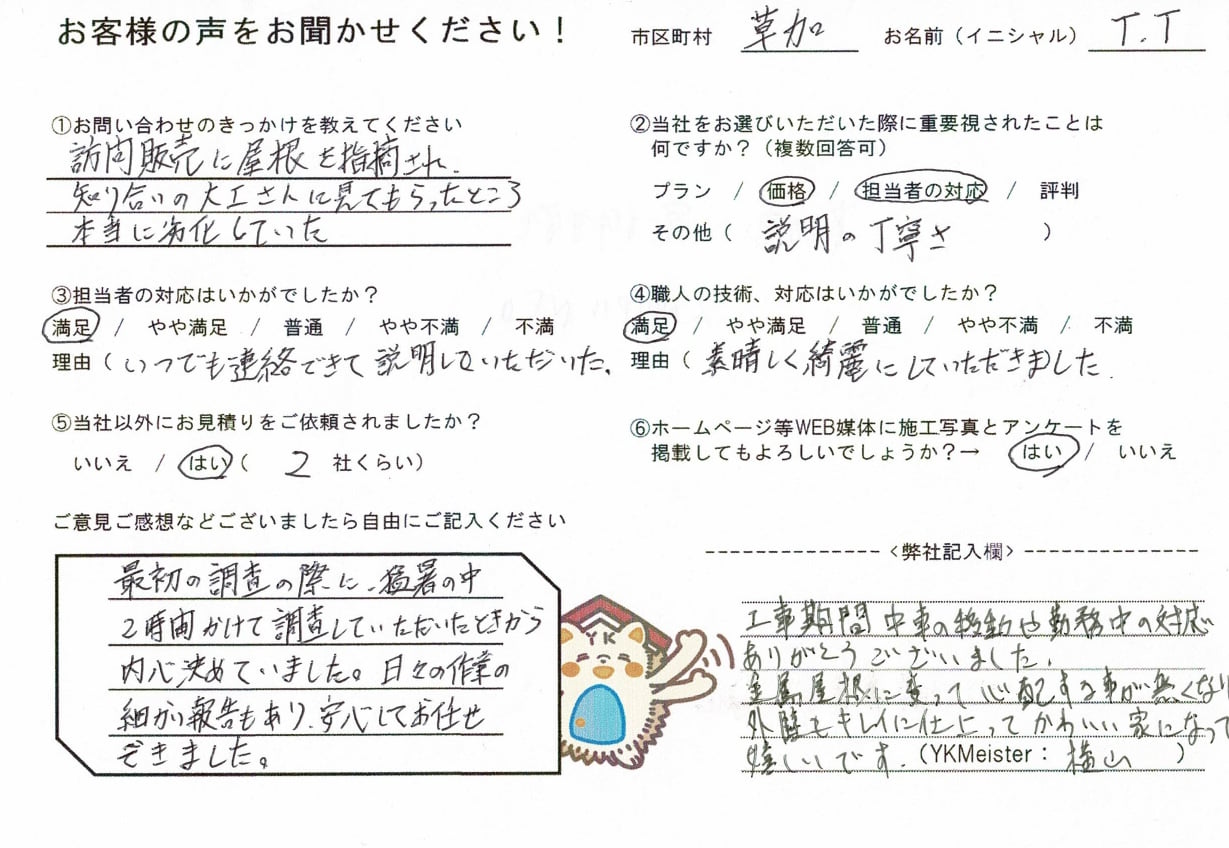 お客様の声をお聞かせください！
市区町村 草加 お名前（イニシャル） T.T
①お問い合わせのきっかけを教えてください
訪問販売に屋根を指摘され、
知り合いの大工さんに見てもらったところ
本当に劣化していた
②当社をお選びいただいた際に重要視されたことは
何ですか？（複数回答可）
プラン / 価格 / 担当者の対応 / 評判
その他（ 説明の丁寧さ ）
③担当者の対応はいかがでしたか？
満足 / やや満足 / 普通 / やや不満 / 不満
理由（いつでも連絡できて説明していただいた。
④職人の技術、対応はいかがでしたか？
満足 / やや満足 / 普通 / やや不満 / 不満
理由（素晴しく綺麗にしていただきました。
⑤当社以外にお見積りをご依頼されましたか？
いいえ / はい（ 2 社くらい）
⑥ホームページ等WEB媒体に施工写真とアンケートを
掲載してもよろしいでしょうか？→ はい / いいえ
ご意見ご感想などございましたら自由にご記入ください
最初の調査の際に、猛暑の中
2時間かけて調査していただいたときから
内心決めていました。日々の作業の
細かい報告もあり、安心してお任せ
できました。
YK
<弊社記入欄>
工事期間中車の移動や勤務中の対応
ありがとうございました。
金属屋根に変って心配する事が無くなり
外壁もキレイに仕上ってかわいい家になって
嬉しいです。（YKMeister： 横山 ）